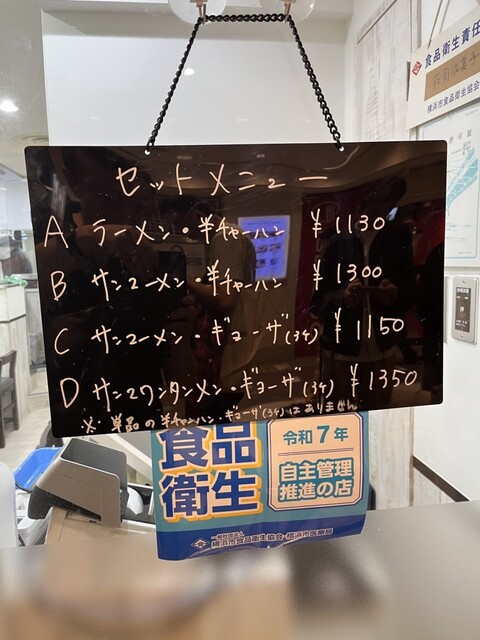 セットメニュー
A ラーメン・半チャーハン ¥1130
B サンマーメン・半チャーハン ¥1300
C サンマーメン・ギョーザ(3ケ) ¥1150
D サンマワンタンメン・ギョーザ(3ケ) ¥1350
※単品の半チャーハン・ギョーザ(3ケ)はありません
食品衛生責任
横浜市食品衛生協会
食品
衛生
令和7年
自主管理
推進の店
一般社団法人
横浜市食品衛生協会・横浜市医療局